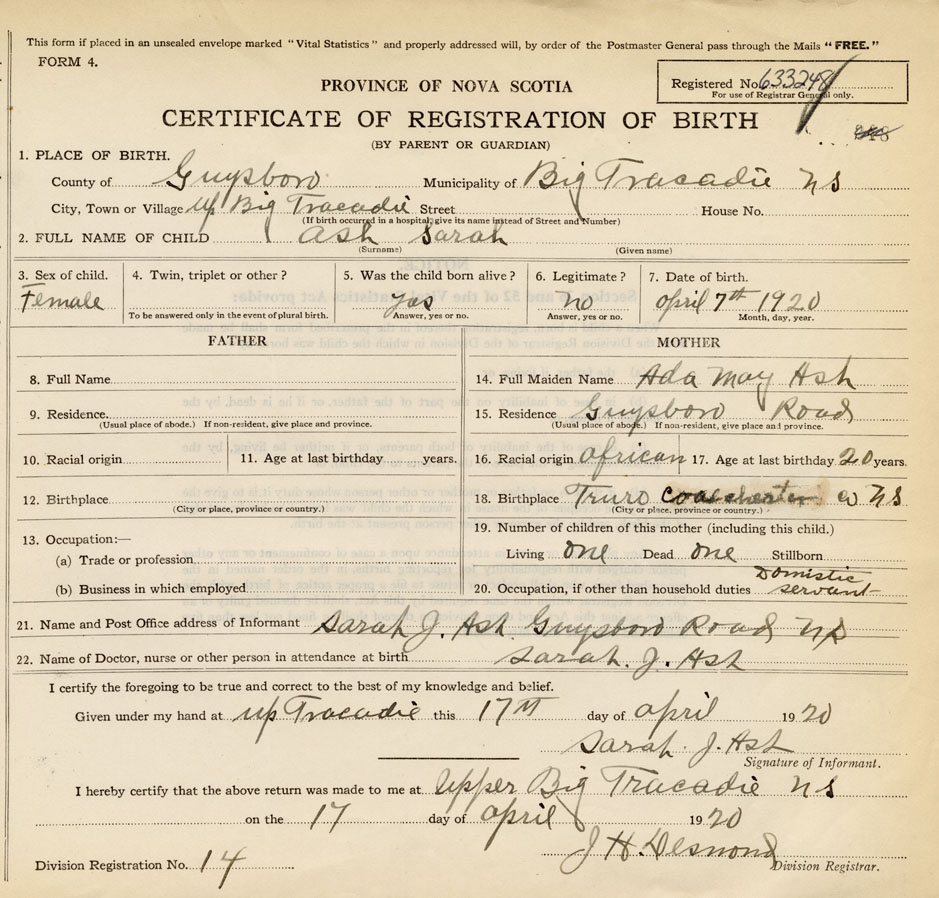 This form if placed in an unsealed envelope marked "Vital Statistics" and properly addressed will, by order of the Postmaster General pass through the Mails "FREE."
FORM 4.
PROVINCE OF NOVA SCOTIA
Registered No. 633248
For use of Registrar General only.
CERTIFICATE OF REGISTRATION OF BIRTH
(BY PARENT OR GUARDIAN)
1. PLACE OF BIRTH.
County of Guysboro Municipality of Big Tracadie NS
City, Town or Village up Big Tracadie Street House No.
(If birth occurred in a hospital, give its name instead of Street and Number)
2. FULL NAME OF CHILD Ash Sarah
(Surname) (Given name)
3. Sex of child. 4. Twin, triplet or other? 5. Was the child born alive? 6. Legitimate? 7. Date of birth.
Female yas no april 7th 1920
To be answered only in the event of plural birth. Answer, yes or no. Answer, yes or no. Month, day, year.
FATHER MOTHER
8. Full Name 14. Full Maiden Name Ada may Ash
9. Residence. 15. Residence Guysboro Road
(Usual place of abode.) If non-resident, give place and province. (Usual place of abode.) If non-resident, give place and province.
10. Racial origin 11. Age at last birthday years. 16. Racial origin african 17. Age at last birthday 20 years.
12. Birthplace 18. Birthplace Truro co NS
(City or place, province or country.) (City or place, province or country.)
13. Occupation:— 19. Number of children of this mother (including this child.)
(a) Trade or profession Living one Dead one Stillborn
(b) Business in which employed 20. Occupation, if other than household duties Domistic servant
21. Name and Post Office address of Informant Sarah J. Ash Guysboro Road NS
22. Name of Doctor, nurse or other person in attendance at birth Sarah. J. Ash
I certify the foregoing to be true and correct to the best of my knowledge and belief.
Given under my hand at up Tracadie this 17th day of april 1920
Sarah. J. Ash
Signature of Informant.
I hereby certify that the above return was made to me at Upper Big Tracadie NS
on the 17 day of april 1920
J H. Desmond
Division Registration No. 14 Division Registrar.